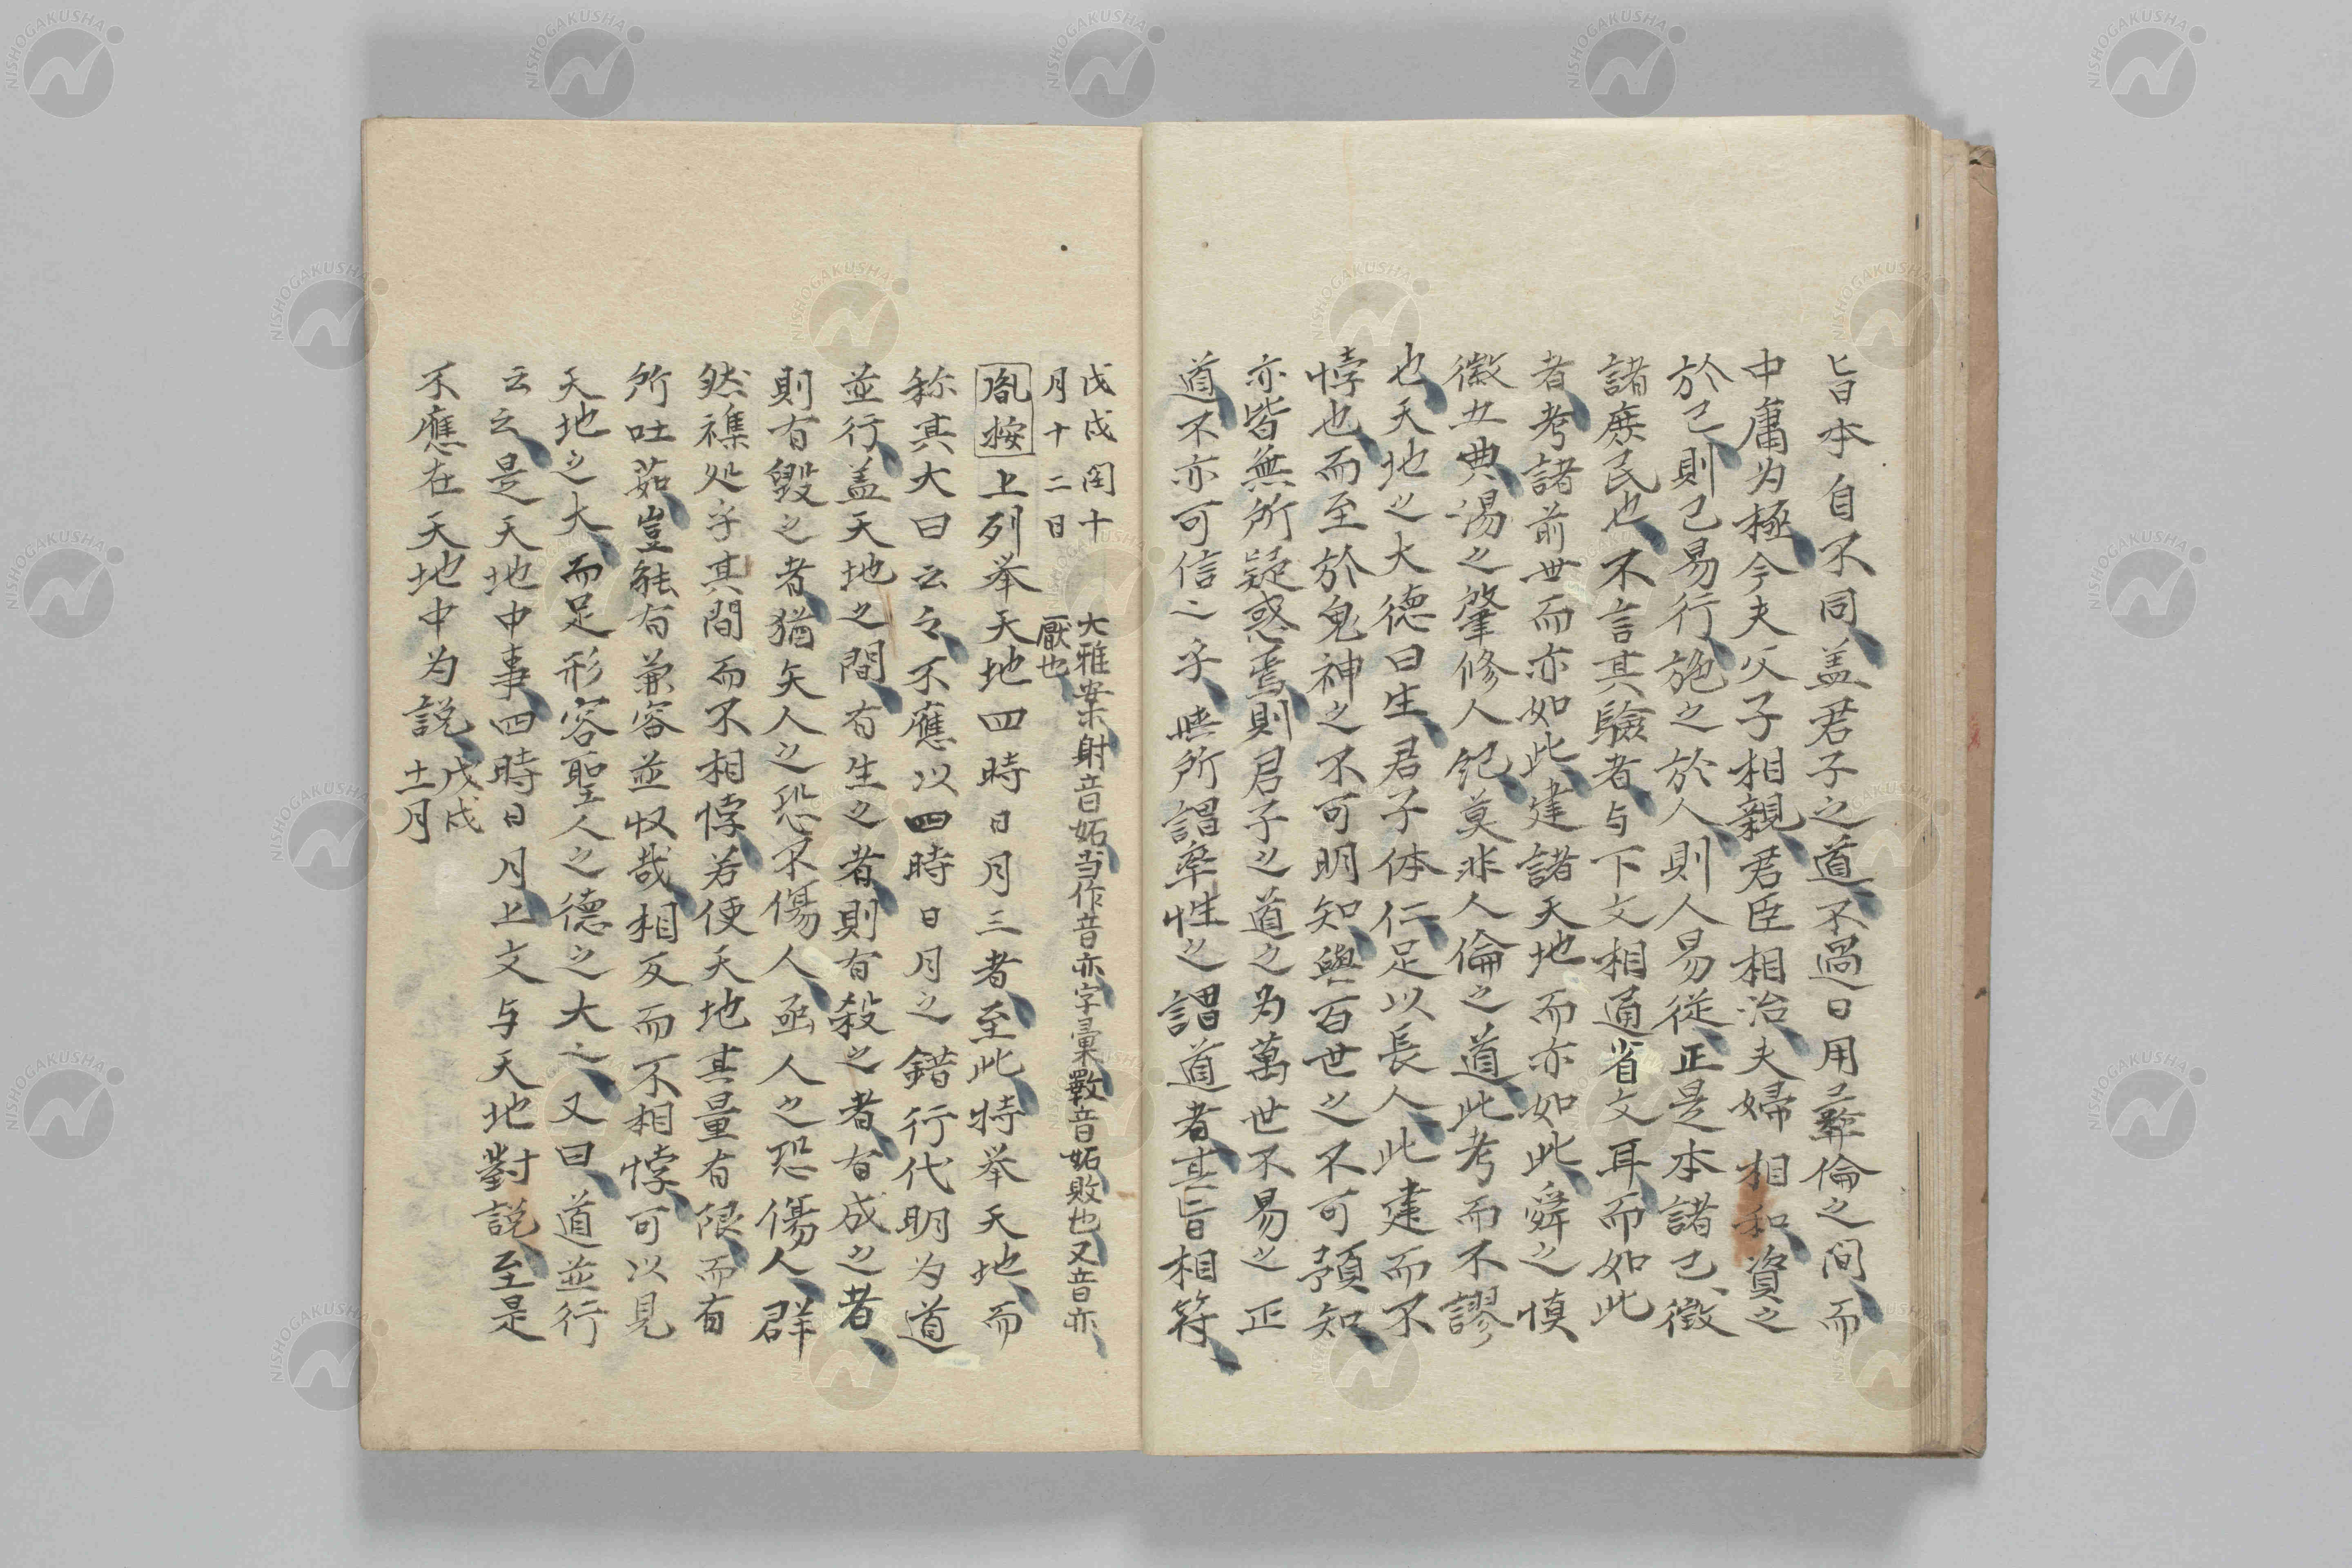 旨本自不同盖君子之道不過日用彛倫之间而
中庸为極今夫父子相親君臣相治夫婦相和資之
於己則己易行施之於人則人易從正是本諸己徴
諸庶民也不言其驗者与下文相通省文耳而如此
者考諸前世而亦如此建諸天地而亦如此舜之慎
徽五典湯之肇修人紀莫非人倫之道此考而不謬
也天地之大德曰生君子体仁足以長人此建而不
悖也而至於鬼神之不可明知與百世之不可預知
亦皆無所疑惑焉則君子之道之为萬世不易之正
道不亦可信之乎唯所謂率性之謂道者其旨相符
戊戌閏十
月十二日
大雅案射音妬当作音亦字彙斁音妬敗也又音亦
厭也
胤按上列举天地四時日月三者至此特举天地而
称其大曰云々不應以四時日月之錯行代明为道
並行盖天地之間有生之者則有殺之者有成之者
則有毀之者猶矢人之恐不傷人函人之恐傷人群
然襍处乎其間而不相悖若使天地其量有限而有
所吐茹豈能有兼容並収哉相反而不相悖可以見
天地之大而足形容聖人之德之大之又曰道並行
云云是天地中事四時日月上文与天地對説至是
不應在天地中为説戊戌
十一月
NISHOGAKUSHA